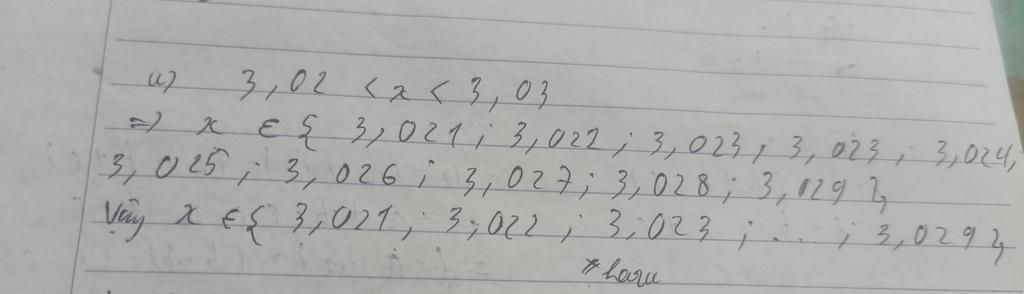 a) 3,02 < x < 3,03
=> x ∈ { 3,021 ; 3,022 ; 3,023 ; 3,023 ; 3,024;
3,025 ; 3,026 ; 3,027 ; 3,028 ; 3,029 }
Vậy x ∈ { 3,021 ; 3,022 ; 3,023 ; ... ; 3,029 }